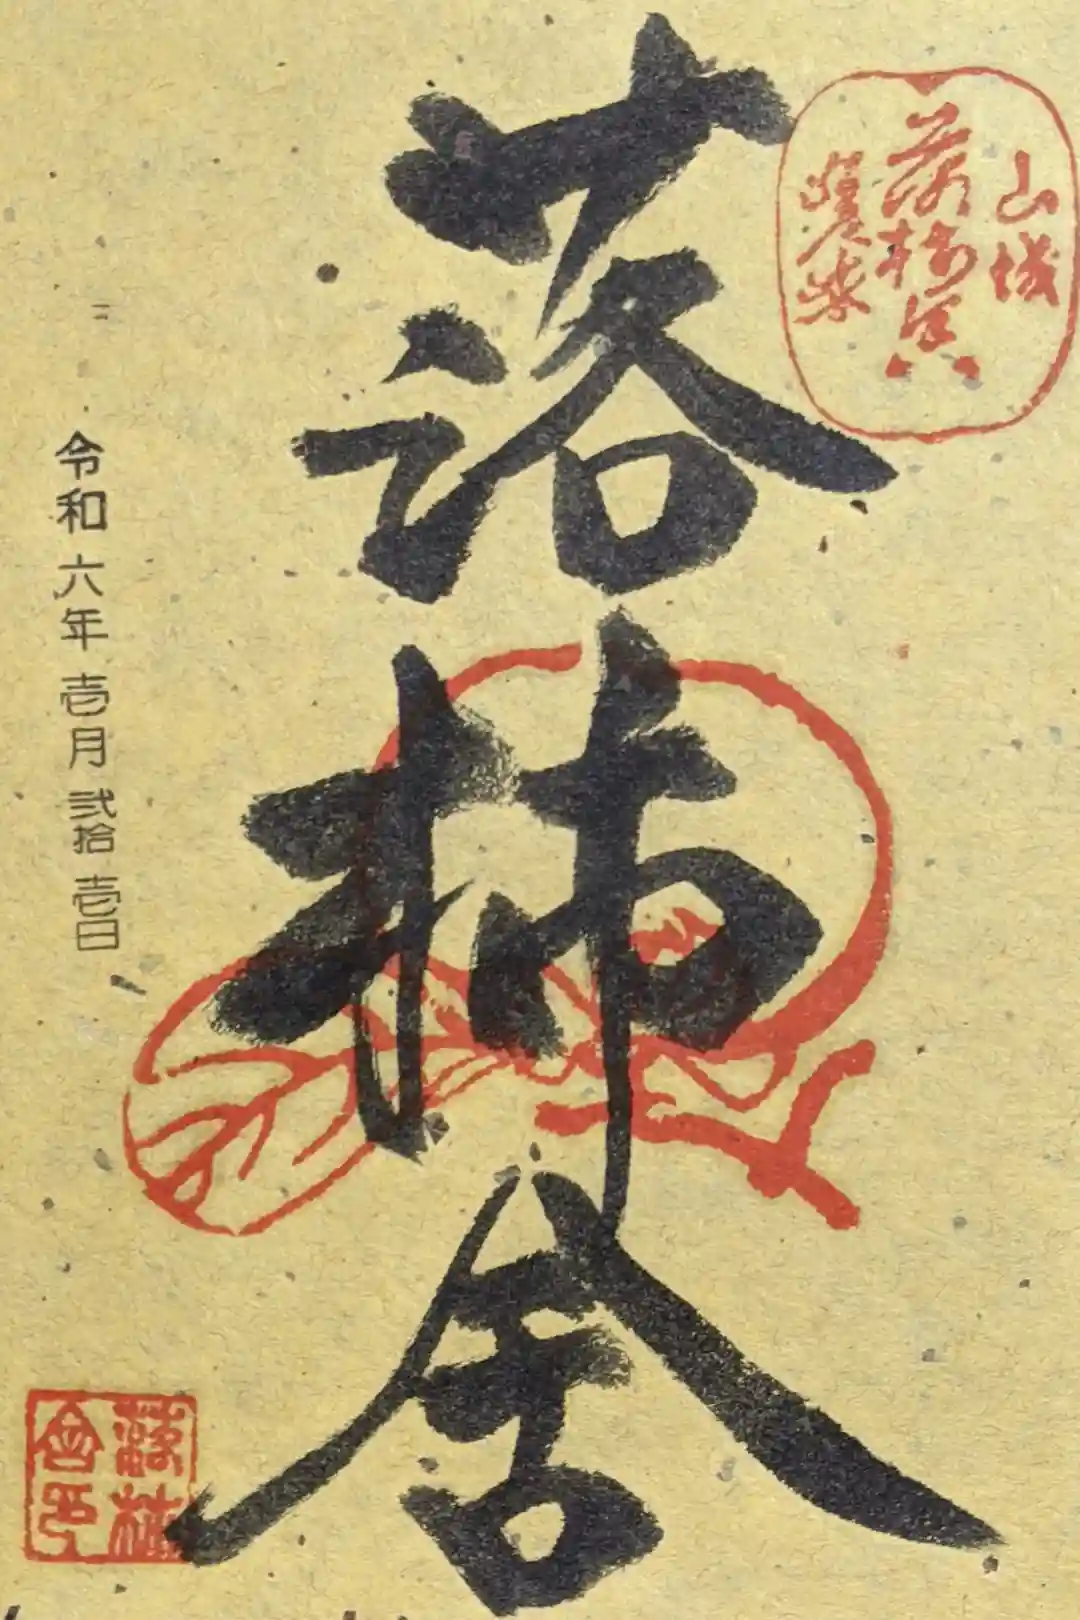 山城
落柿舎
嵯峨
落柿舎
令和六年壱月弐拾壱日
落柿
舎印